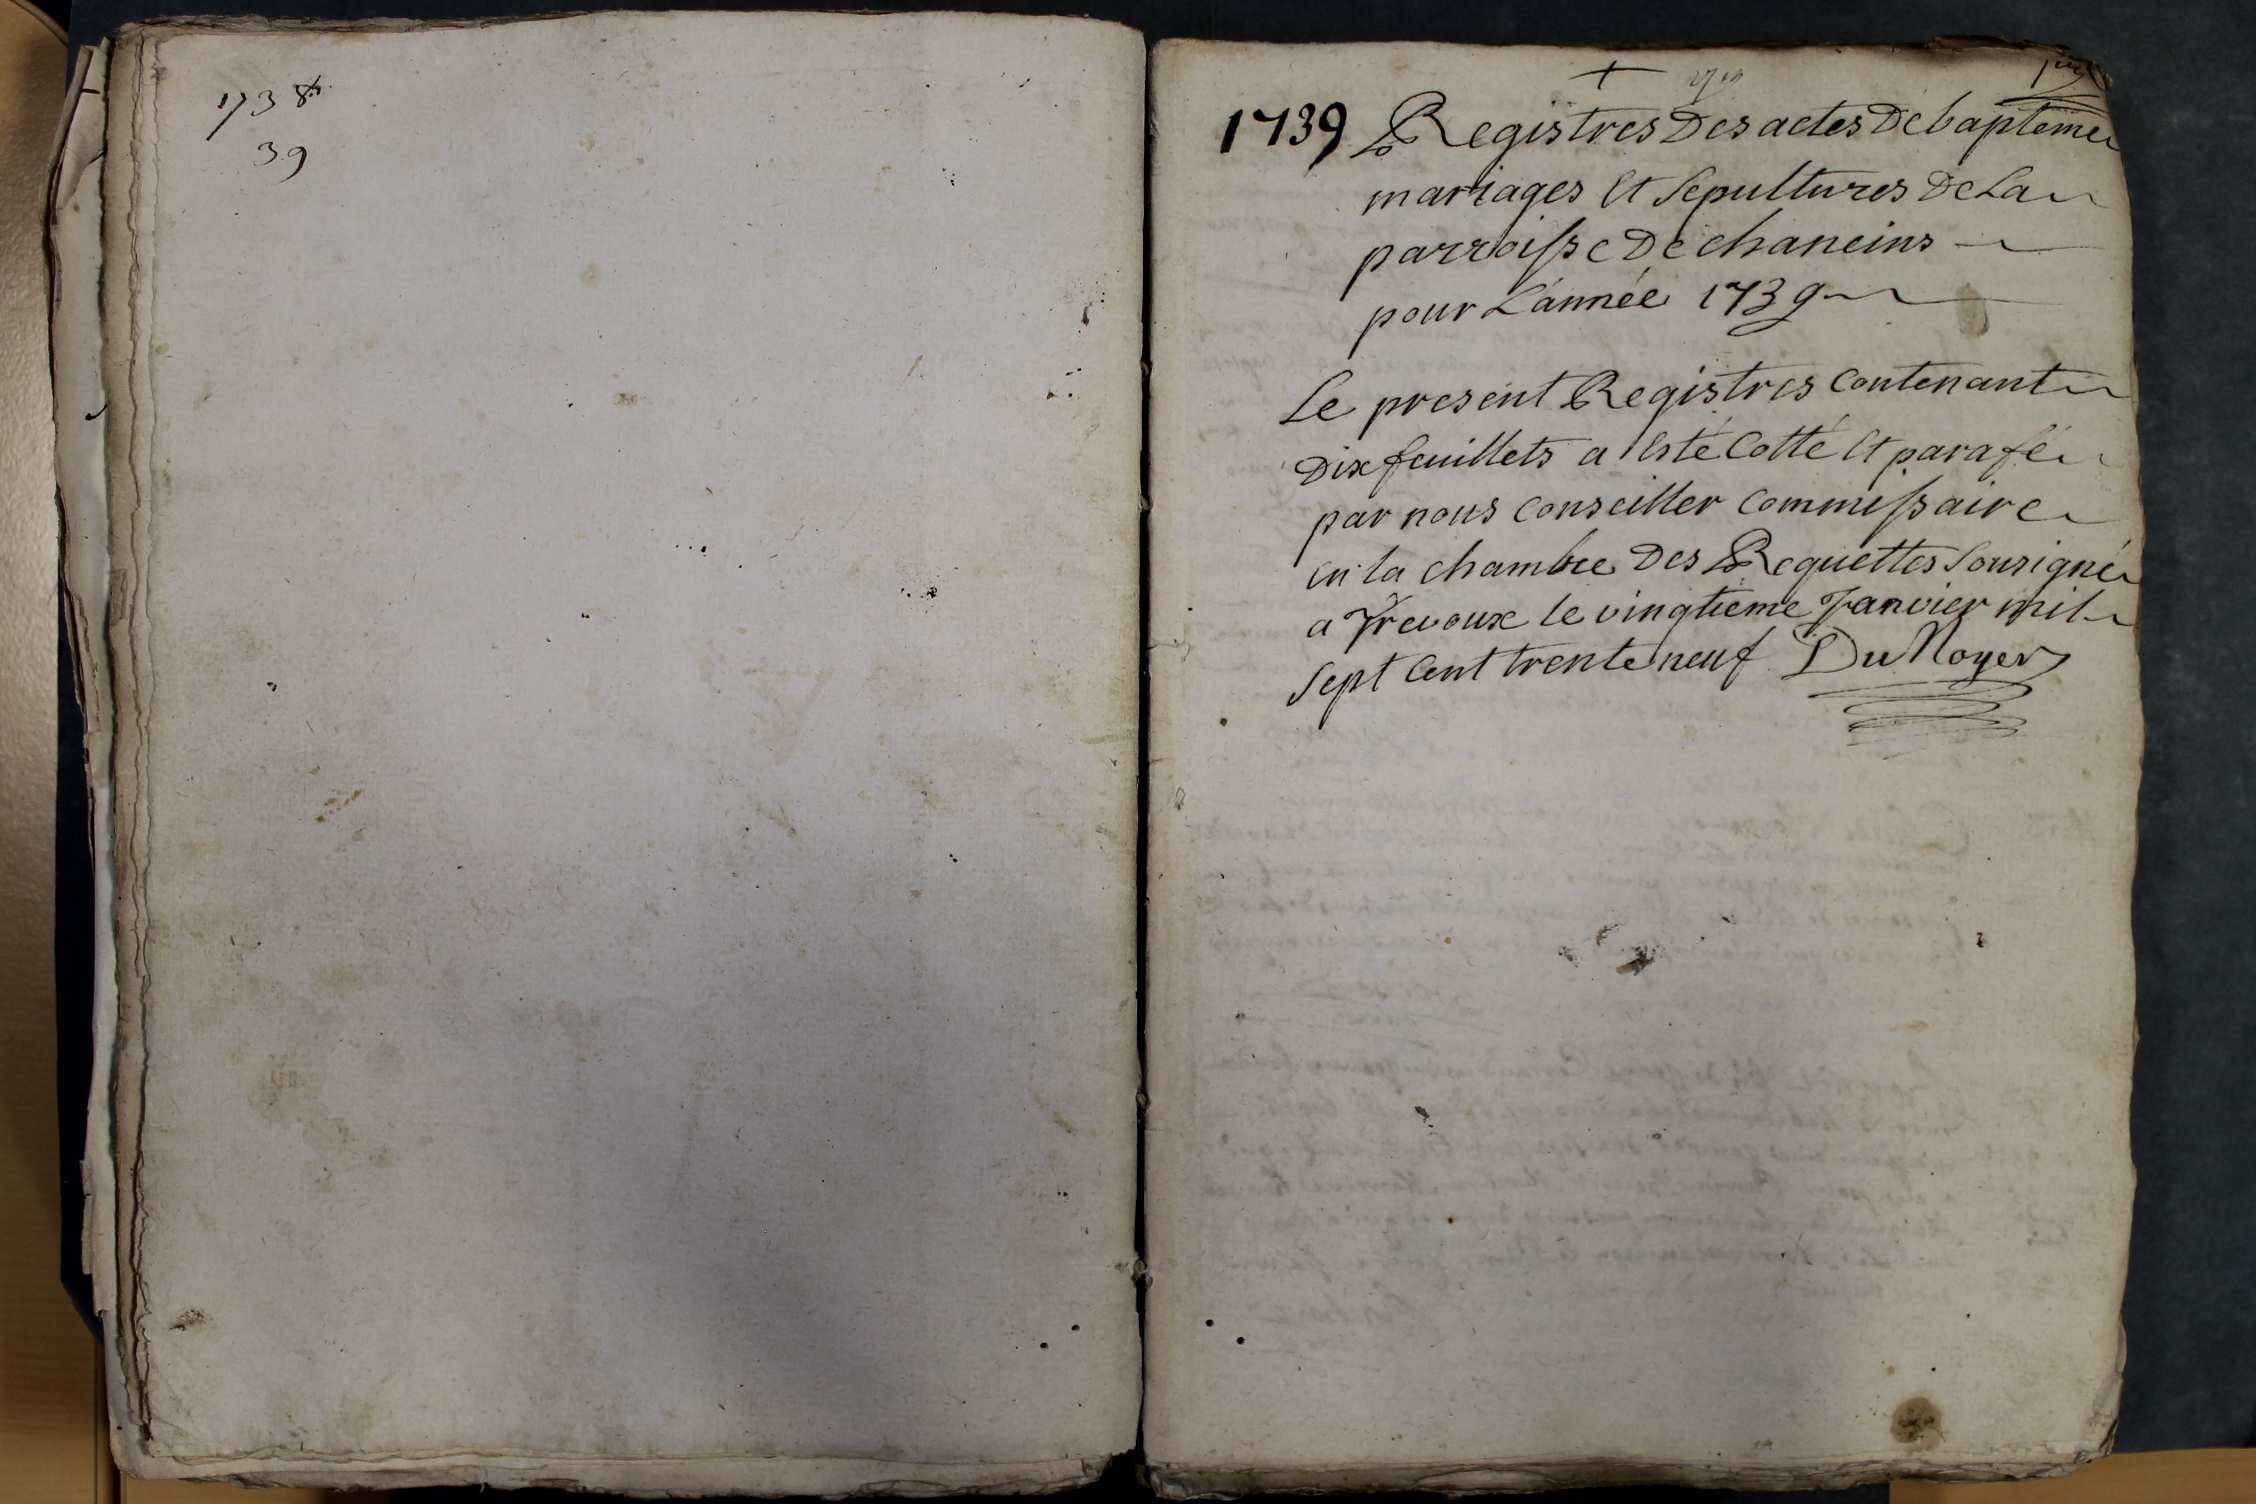 1738
39
1739 Registres Des actes De bapteme
mariages et Sepultures De La
parroisse De chaneins
pour L'année 1739
Le present Registres Contenant
Dix feuillets a Esté Cotté et parafé
par nous Conseiller Commissaire
en la chambre Des Requettes Sousigné
a Trevoux le vingtieme Janvier mil
Sept Cent trente neuf DuNoyer